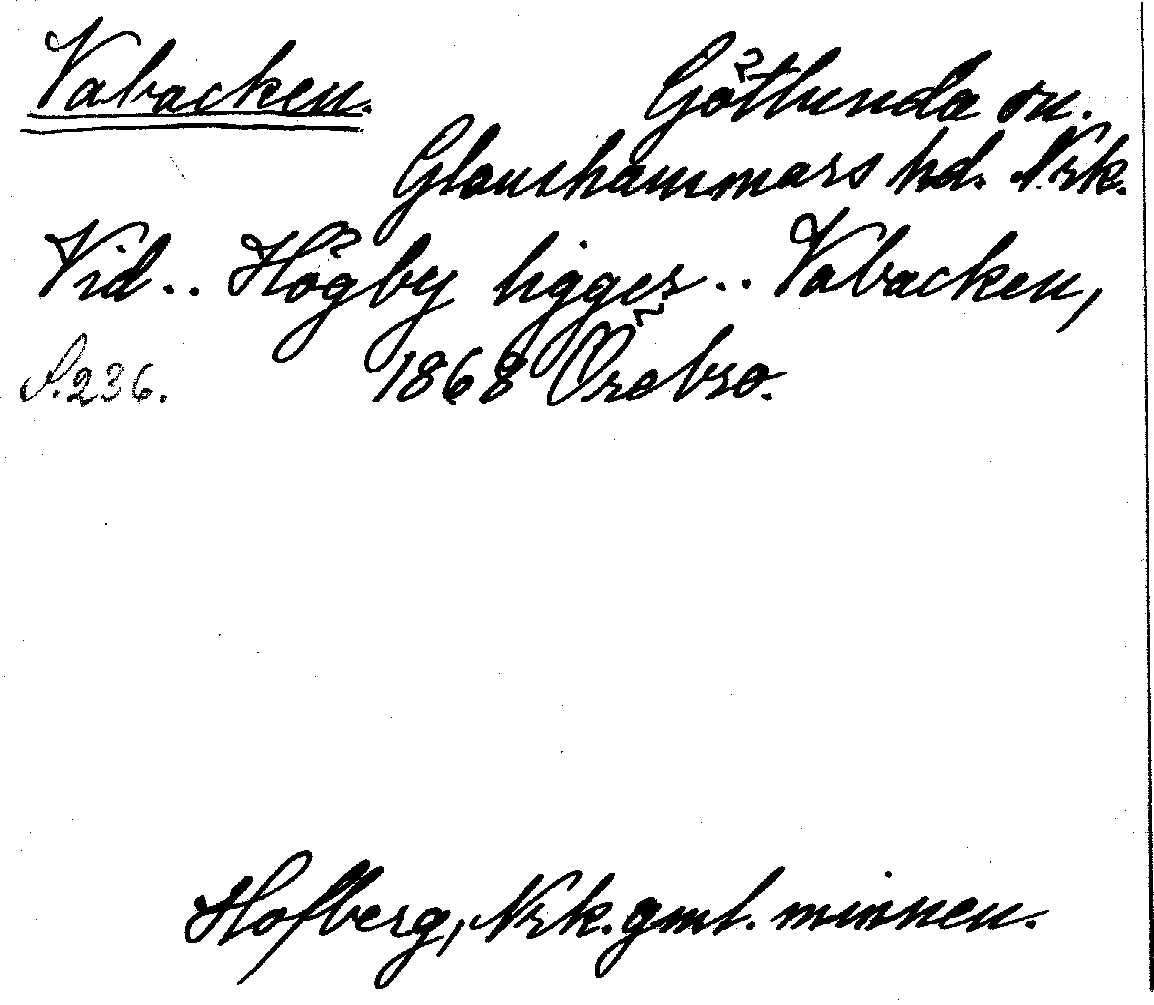 Vabacken.
Götlunda sn.
Glanshammars hd. Nrk.
Vid.. Högby ligger.. Vabacken,
S. 236. 1868 Örebro.
Hofberg, Nrk. gml. minnen.